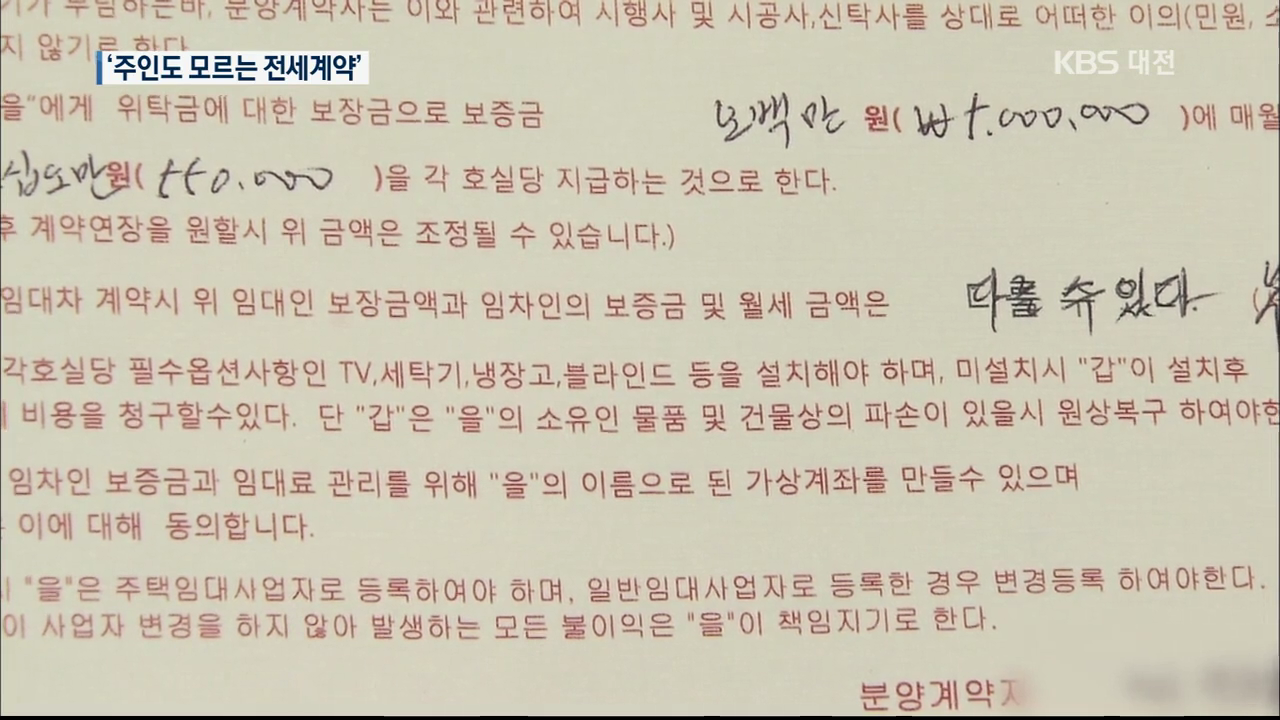 기가 부담하는바, 분양계약자는 이와 관련하여 시행사 및 시공사,신탁사를 상대로 어떠한 이의(민원,
지 않기로 한다
'주인도 모르는 전세계약'
KBS 대전
을"에게 위탁금에 대한 보장금으로 보증금 오백만 원(₩5,000,000 )에 매월
십오만원( 550,000 )을 각 호실당 지급하는 것으로 한다.
후 계약연장을 원할시 위 금액은 조정될 수 있습니다.)
임대차 계약시 위 임대인 보장금액과 임차인의 보증금 및 월세 금액은 다를 수 있다.
각호실당 필수옵션사항인 TV,세탁기,냉장고,블라인드 등을 설치해야 하며, 미설치시 "갑"이 설치후
비용을 청구할수있다. 단 "갑"은 "을"의 소유인 물품 및 건물상의 파손이 있을시 원상복구 하여야한
임차인 보증금과 임대료 관리를 위해 "을"의 이름으로 된 가상계좌를 만들수 있으며
이에 대해 동의합니다.
"을"은 주택임대사업자로 등록하여야 하며, 일반임대사업자로 등록한 경우 변경등록 하여야한다.
이 사업자 변경을 하지 않아 발생하는 모든 불이익은 "을"이 책임지기로 한다.
분양계약자